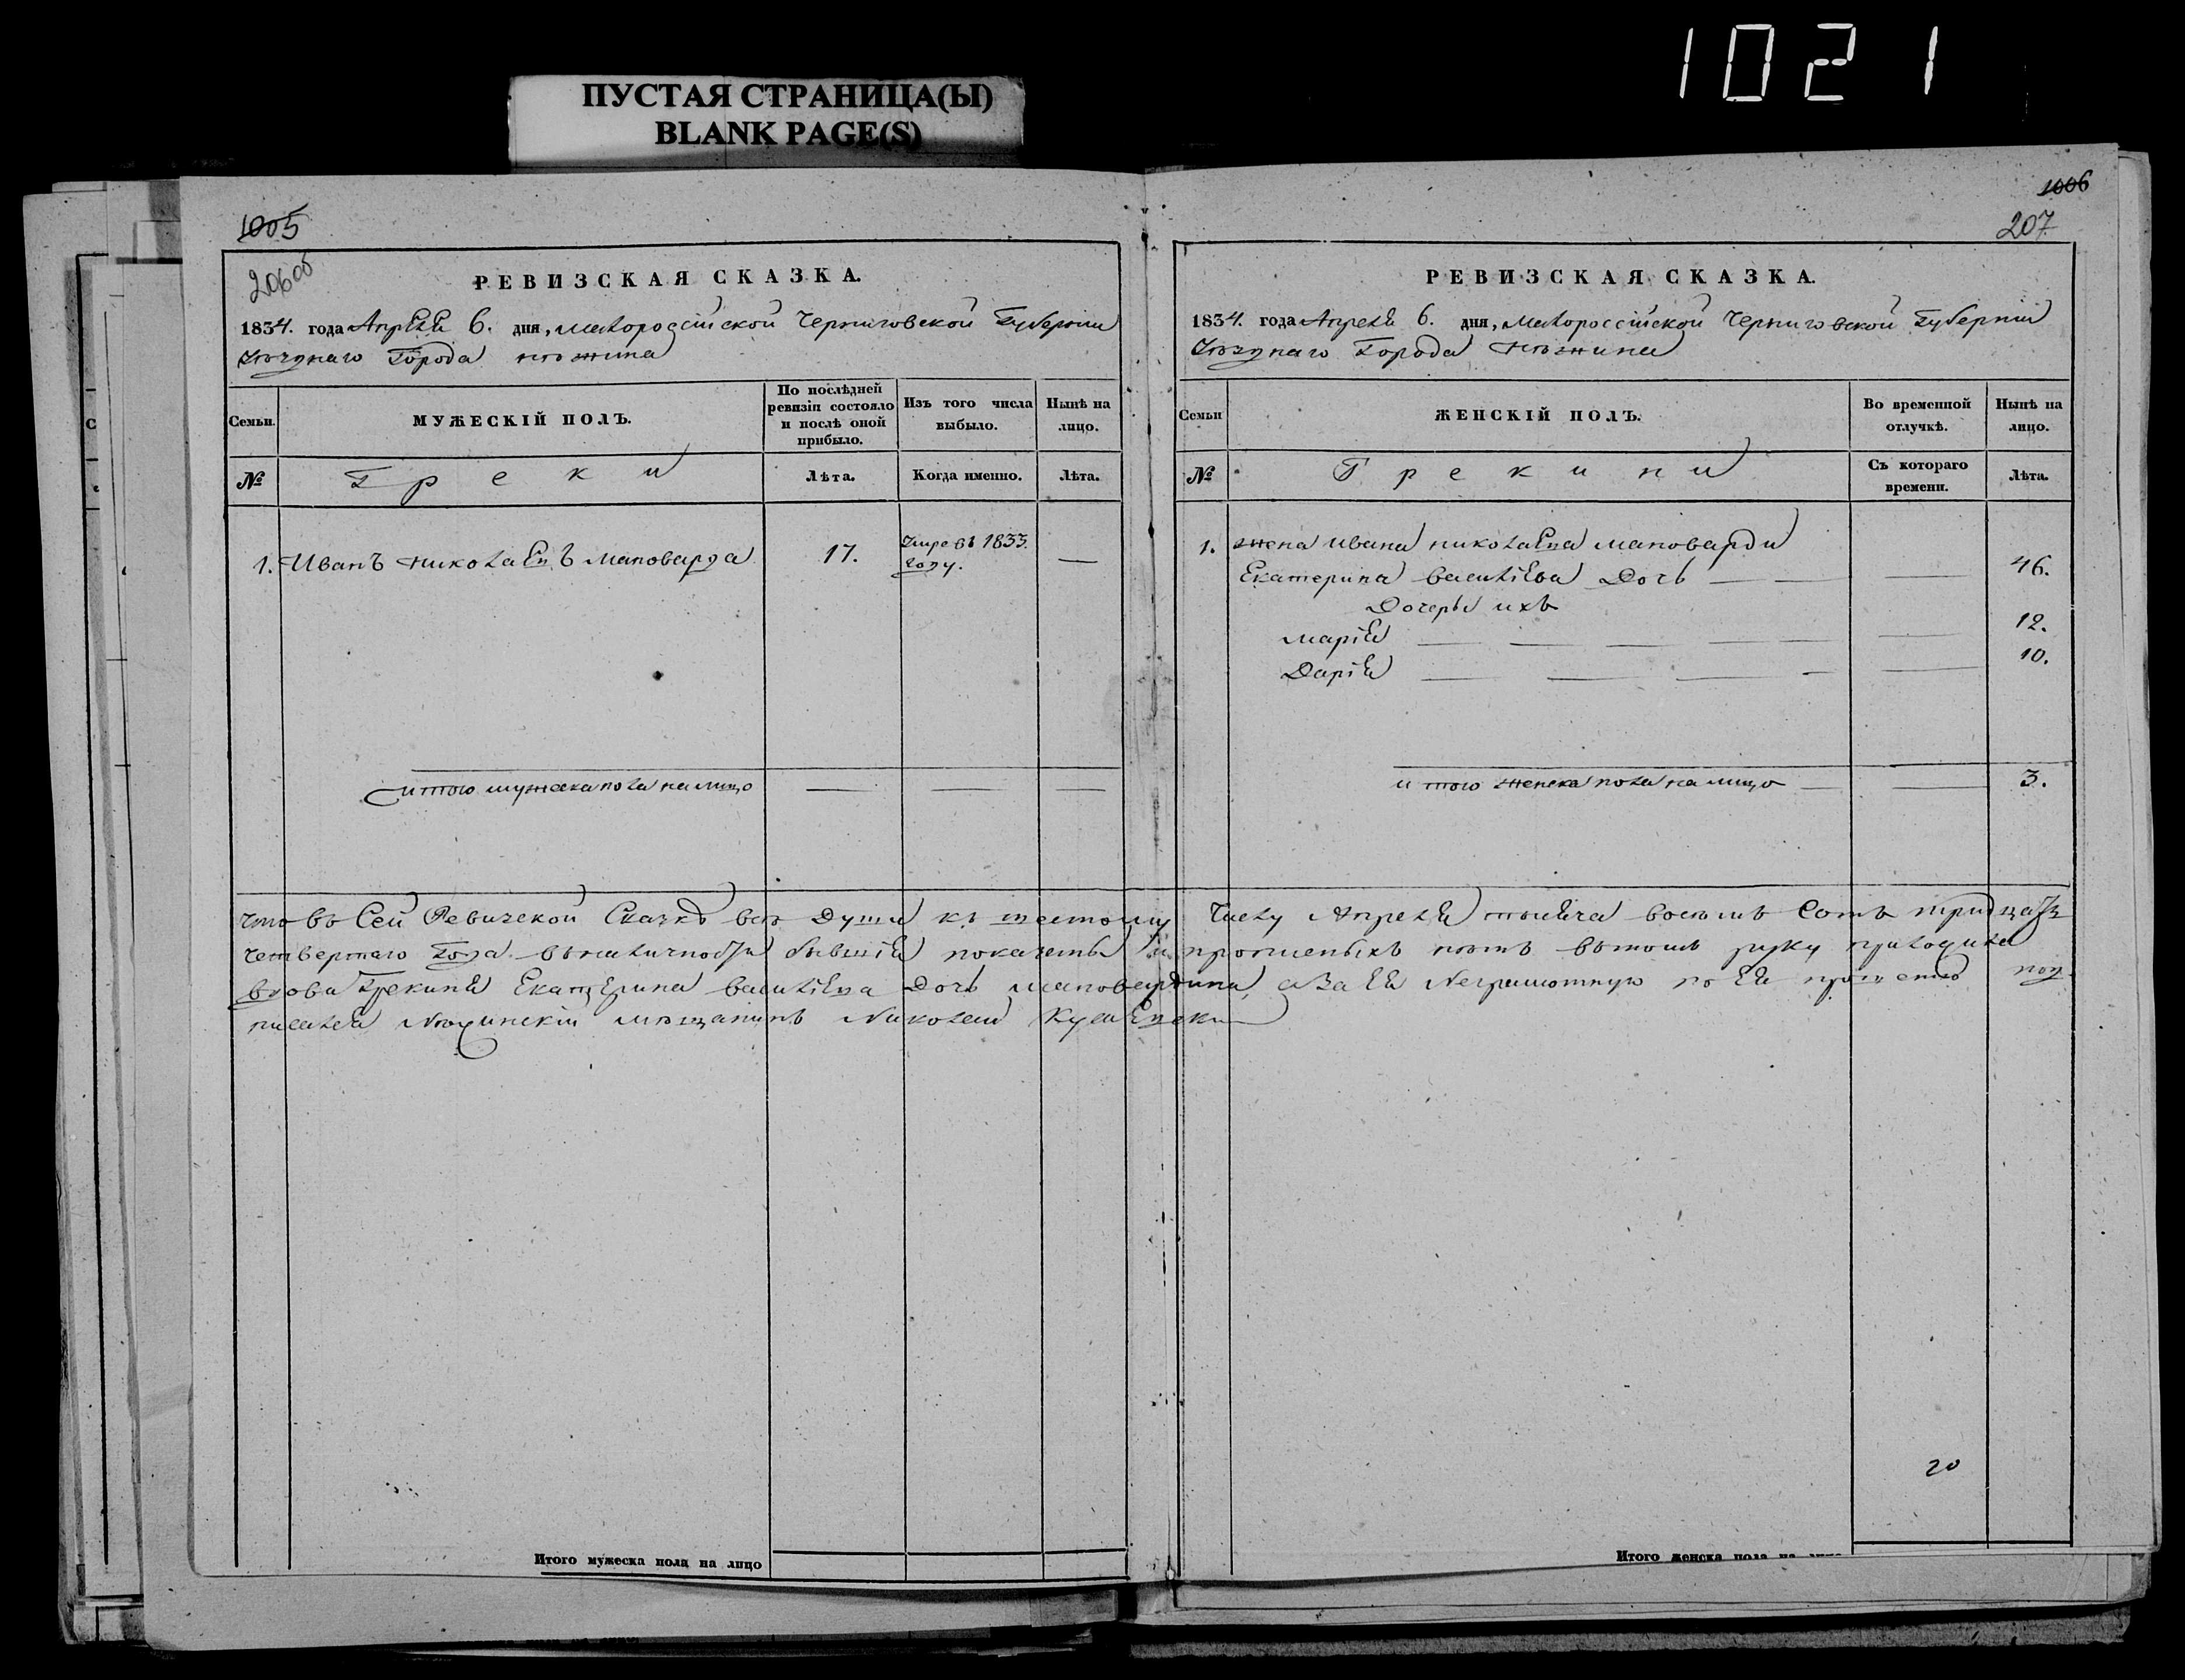 1021
ПУСТАЯ СТРАНИЦА(Ы)
BLANK PAGE(S)
1005
206об
РЕВИЗСКАЯ СКАЗКА.
1834. года Апреля 6. дня, малороссійской Черниговской Губерніи
уезднаго Города нѣжина
Семьи.
МУЖЕСКІЙ ПОЛЪ.
По послѣдней ревизіи состояло и послѣ оной прибыло.
Изъ того числа выбыло.
Нынѣ на лицо.
№
Греки
Лѣта.
Когда именно.
Лѣта.
1. Иванъ николаевъ мановарда 17. умре въ 1833. году. —
итого мужеска пола на лицо — — —
Итого мужеска пола на лицо
1006
207
РЕВИЗСКАЯ СКАЗКА.
1834. года Апреля 6. дня, малороссійской Черниговской Губерніи
уезднаго Города нѣжина
Семьи
ЖЕНСКІЙ ПОЛЪ.
Во временной отлучкѣ.
Нынѣ на лицо.
№
Грекини
Съ котораго времени.
Лѣта.
1. жена ивана николаева мановарди
Екатерина василіева Дочь — — — 46.
Дочеры ихъ
марія — — — — — 12.
Дарія — — — — — 10.
итого женска пола на лицо — — 3.
что въ Сей Ревизской Сказкѣ всѣ Души къ шестому Числу Апреля тысяча восемь Сотъ тридцать
четвертаго Года въ наличности бывшія показаны и прописныхъ нѣтъ въ томъ руку приложила
вдова Грекиня Екатерина василіева Дочь мановардина, а за Ея Неграмотную по Ея прошенію под
писался Нѣжинскій мѣщанинъ Николай
20
Итого женска пола на лицо